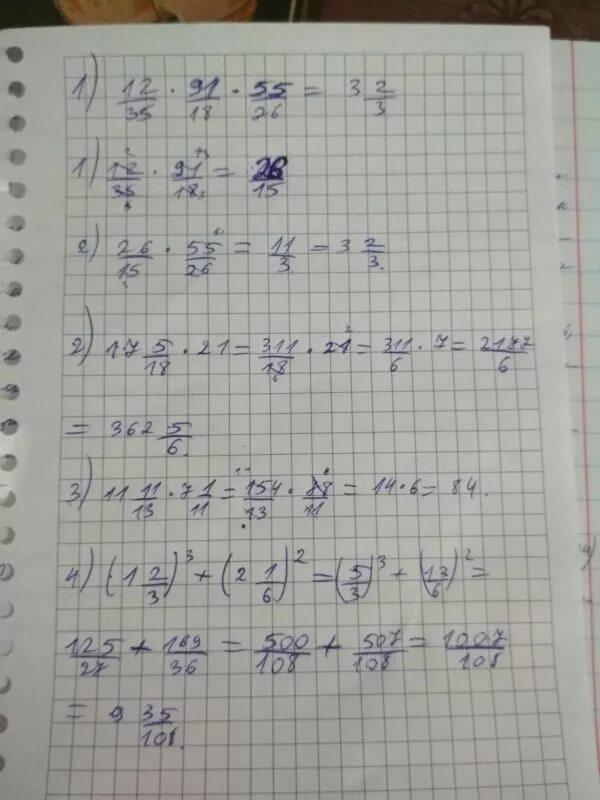 1) 12/35 · 91/18 · 55/26 = 3 2/3
1) 12/35 · 91/18 = 26/15
2) 26/15 · 55/26 = 11/3 = 3 2/3.
2) 17 5/18 · 21 = 311/18 · 21 = 311/6 · 7 = 2177/6
= 362 5/6.
3) 11 11/13 · 7 1/11 = 154/13 · 78/11 = 14 · 6 = 84.
4) (1 2/3)³ + (2 1/6)² = (5/3)³ + (13/6)² =
125/27 + 169/36 = 500/108 + 507/108 = 1007/108
= 9 35/108.